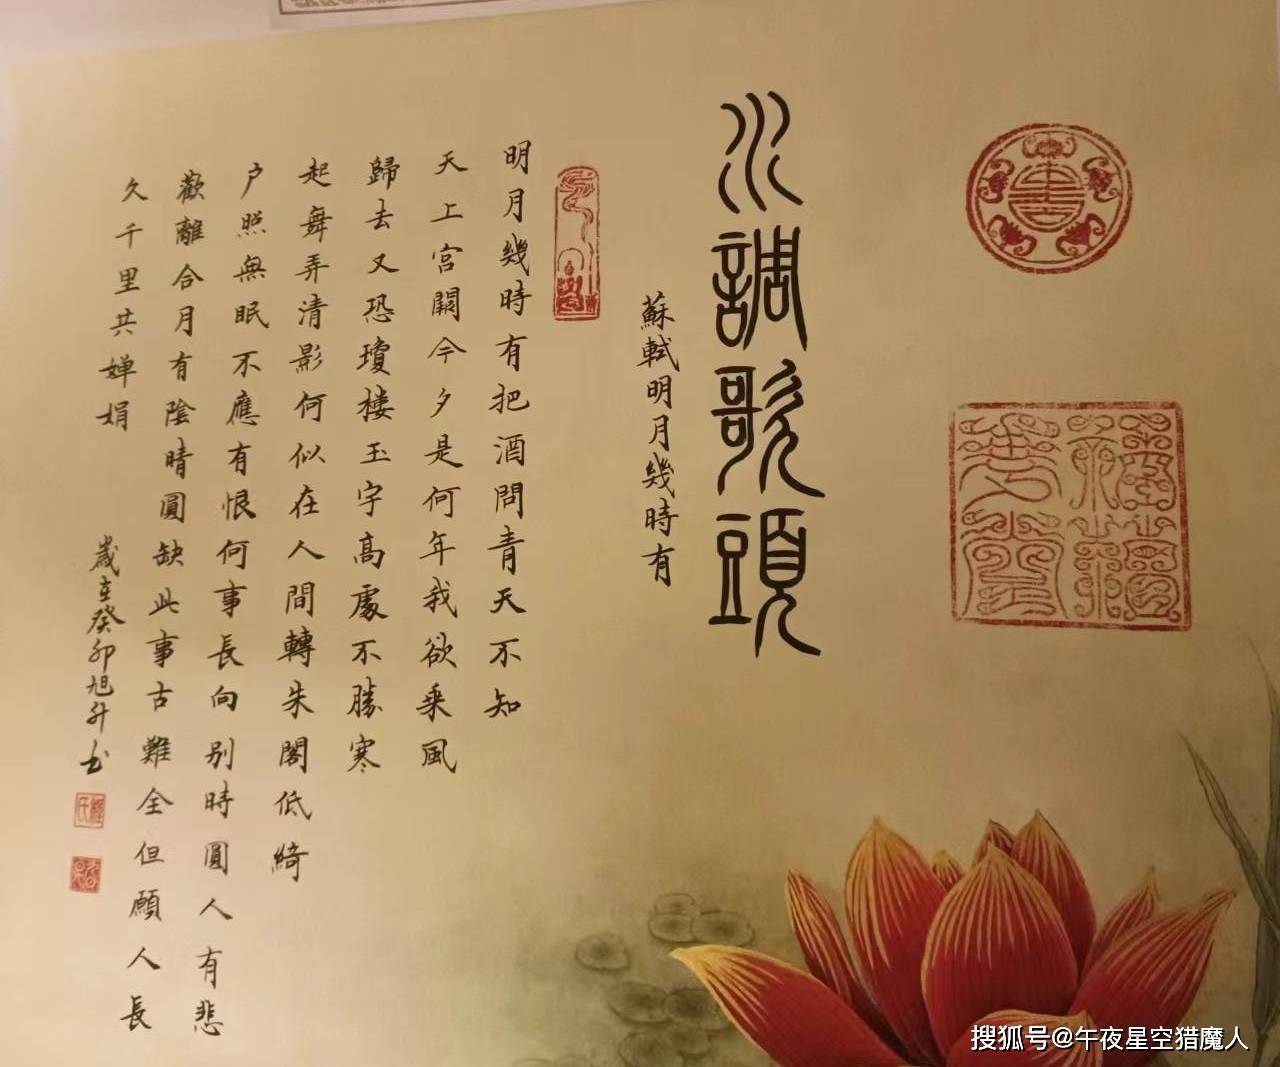 水調歌頭
蘇軾明月幾時有
明月幾時有把酒問青天不知
天上宮闕今夕是何年我欲乘風
歸去又恐瓊樓玉宇高處不勝寒
起舞弄清影何似在人間轉朱閣低綺
户照無眠不應有恨何事長向别時圓人有悲
歡離合月有陰晴圓缺此事古難全但願人長
久千里共婵娟
歲在癸卯旭升书
搜狐号@午夜星空猎魔人